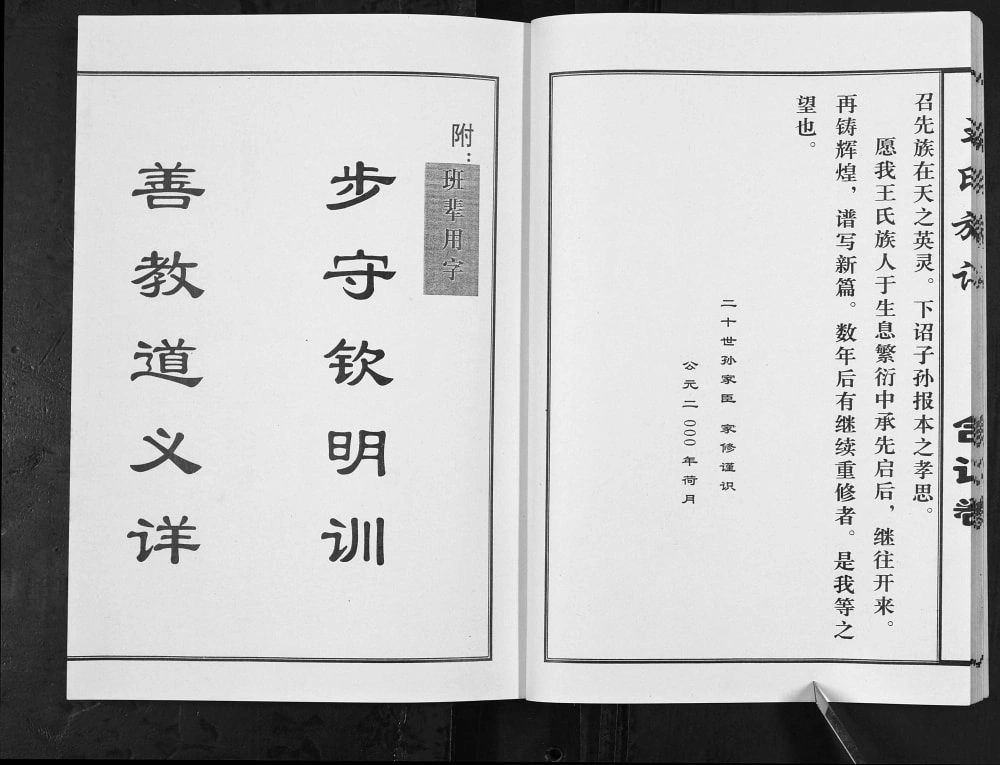 召先族在天之英灵。下诏子孙报本之孝思。
愿我王氏族人于生息繁衍中承先启后，继往开来。
再铸辉煌，谱写新篇。数年后有继续重修者。是我等之
望也。
二十世孙家臣 家修谨识
公元二〇〇〇年荷月
附：班辈用字
步守钦明训
善教道义详